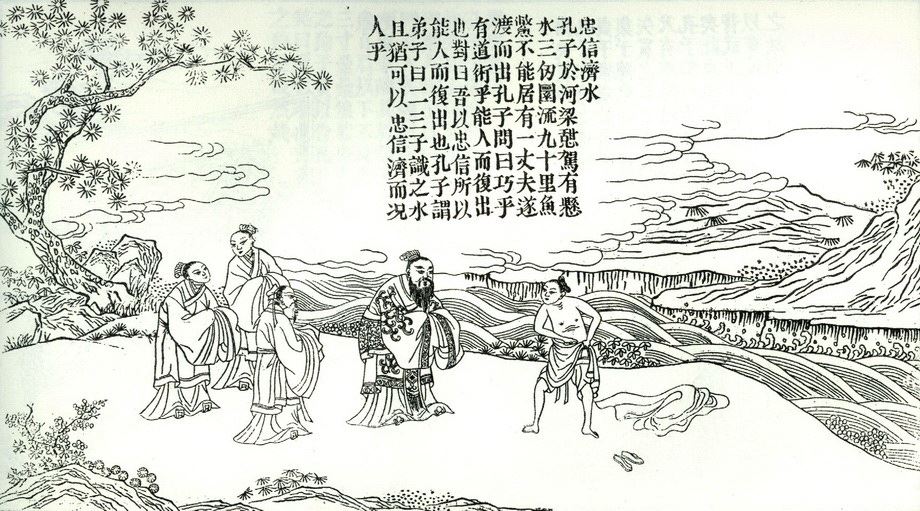 忠信濟水
孔子於河梁憇駕有懸
水三仞圜流九十里魚
鱉不能居有一丈夫遂
渡而出孔子問曰巧乎
有道術乎能入而復出
也對曰吾以忠信所以
能入而復出也孔子謂
弟子曰二三子識之水
且猶可以忠信濟而况
人乎